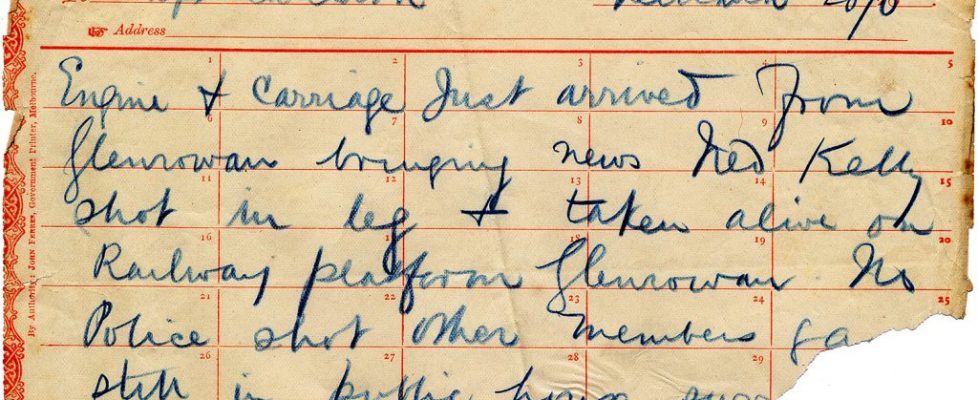 Address
Engine & Carriage Just arrived From
Glenrowan bringing news Ned Kelly
shot in leg & taken alive on
Railway platform Glenrowan No
Police shot other members ga
still in public house
1 2 3 4 5
6 7 8 9 10
11 12 13 14 15
16 17 18 19 20
21 22 23 24 25
26 27 28 29
By Authority: JOHN FERRES, Government Printer, Melbourne.